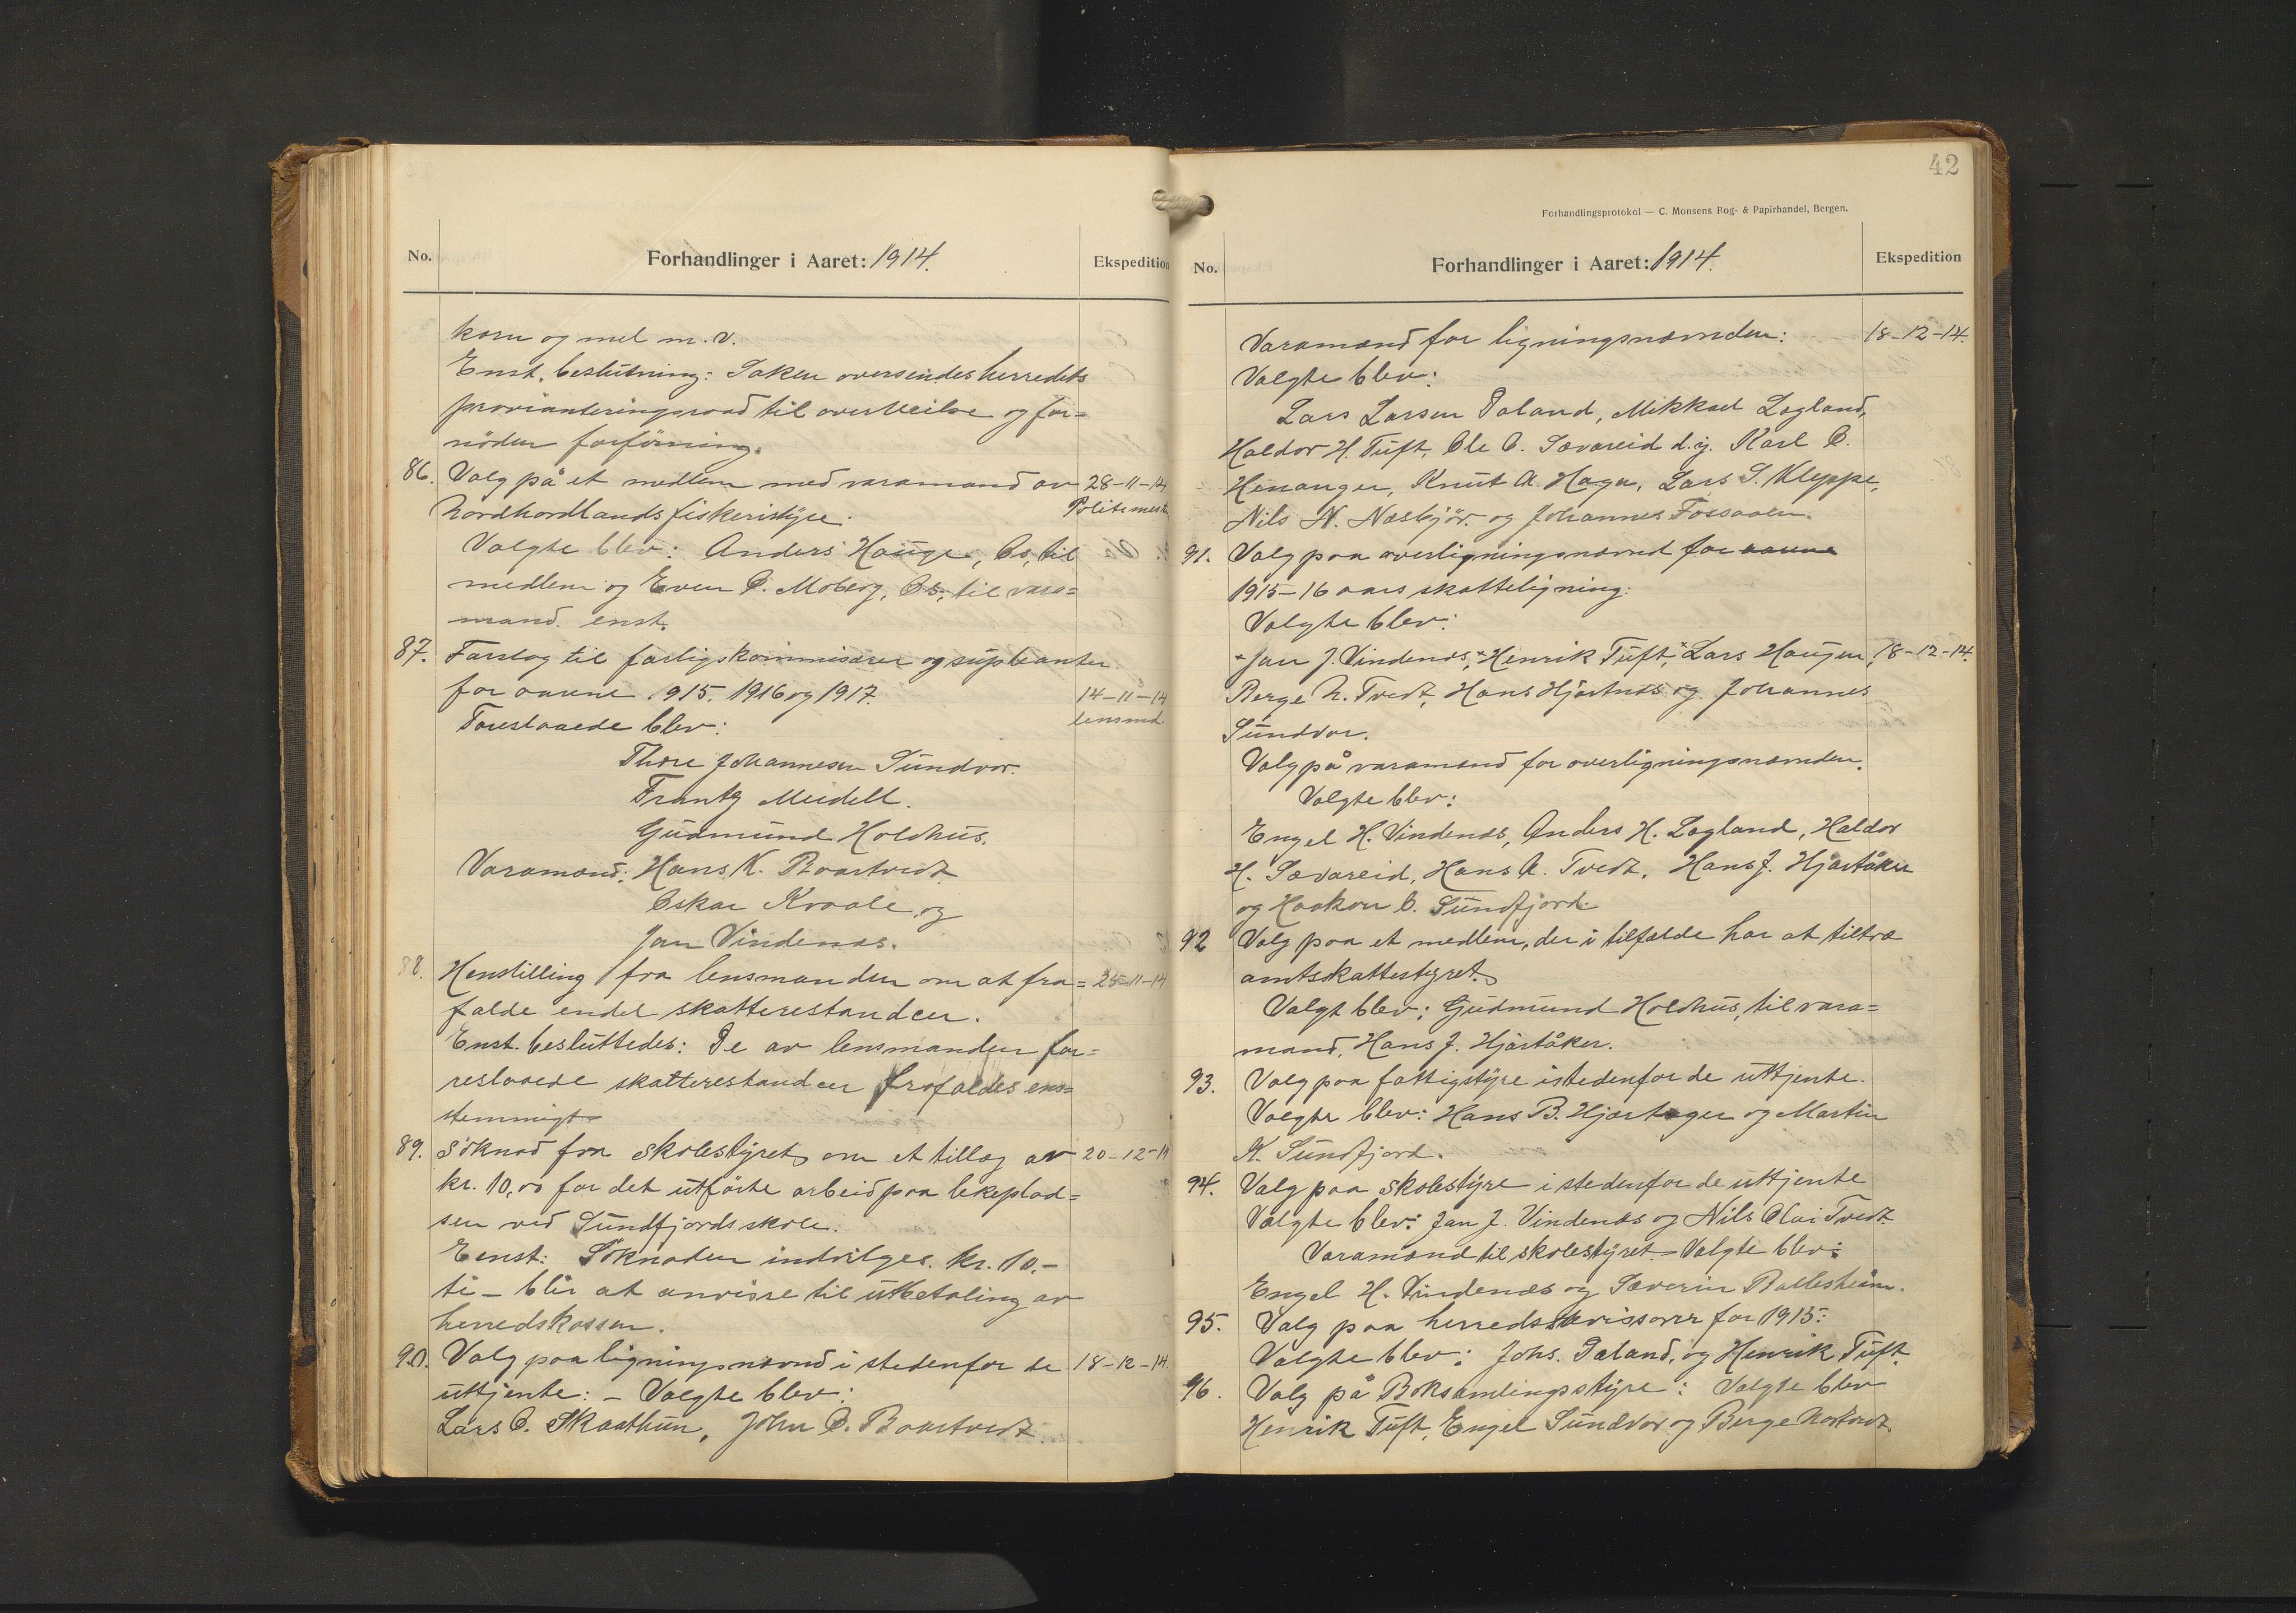 No.
Forhandlinger i Aaret: 1914.
Ekspedition
korn og mel m. v.
Enst. beslutning: Saken oversendes herredets
provianteringsraad til overveielse og for-
nöden forföining.
86. Valg på et medlem med varamand av 28-11-14
Nordhordlands fiskeristyre. Politimest
Valgte blev: Anders Hauge, Os, til
medlem og Even O. Moberg, Os, til vara=
mand. enst.
87. Forslag til forligskommisærer og supleanter
for aarene 1915. 1916 og 1917. 14-11-14
Foreslaaede blev: lensmd.
Thore Johannesen Sundvor.
Frantz Meidell.
Gudmund Holdhus.
Varamænd: Hans K. Baartvedt
Oskar Kvaale og
Jan Vindenæs.
88. Henstilling fra lensmanden om at fra= 25-11-14
falde endel skatterestancer.
Enst. besluttedes: De av lensmanden fo-
reslaaede skatterestancer frafaldes ens=
stemmigt
89. Söknad fra skolestyret om et tillæg av 20-12-14
kr. 10,00 for det utförte arbeid paa lekeplad=
sen ved Sundfjords skole.
Eenst: Söknaden indvilges. kr. 10.-
ti - blir at anvise til utbetaling av
herredskassen.
90. Valg paa ligningsnævnd i stedenfor de 18-12-14.
uttjente: - Valgte blev:
Lars O. Skaathun, John O. Baartvedt
42
Forhandlingsprotokol — C. Monsens Bog- & Papirhandel, Bergen.
No.
Forhandlinger i Aaret: 1914.
Ekspedition
Varamænd for ligningsnævnden: 18-12-14.
Valgte blev:
Lars Larsen Daland, Mikkael Lygland,
Haldor H. Tuft, Ole O. Sævareid d.y. Karl O.
Henanger, Knut A. Haga, Lars S. Kleppe,
Nils N. Næsbjör og Johannes Fossaaen.
91. Valg paa overligningsnævnd for aarene
1915-16 aars skatteligning:
Valgte blev:
Jan J. Vindenæs, Henrik Tuft, Lars Haugen, 18-12-14.
Berge N. Tvedt, Hans Hjartnæs og Johannes
Sundvor.
Valg på varamænd for overligningsnævnden.
Valgte blev:
Engel H. Vindenæs, Anders H. Lygland, Haldor
H. Sævareid, Hans A. Tvedt, Hans J. Hjartåker
og Haakon O. Sundfjord.
92 Valg paa et medlem, der i tilfælde har at tiltræ
amtskattestyret.
Valgt blev: Gudmund Holdhus, til vara=
mand, Hans J. Hjartåker.
93. Valg paa fattigstyre istedenfor de uttjente.
Valgte blev: Hans B. Hjartager og Martin
K. Sundfjord.
94. Valg paa skolestyre i stedenfor de uttjente
Valgte blev: Jan J. Vindenæs og Nils Olai Tvedt.
Varamænd til skolestyret - Valgte blev:
Engel H. Vindenæs og Severin Baltesheim.
95. Valg paa herredsrevisorer for 1915:
Valgte blev: Johs. Daland, og Henrik Tuft.
96. Valg på Boksamlingsstyre: Valgte blev
Henrik Tuft, Engel Sundvor og Berge Nortvedt.